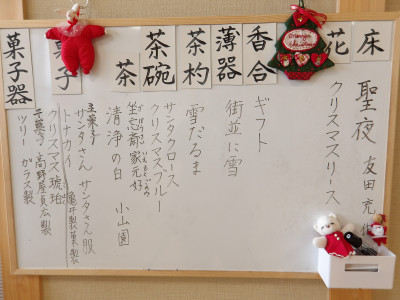 床
聖夜 友田 充
花
クリスマスリース
香合
ギフト
薄器
街並に雪
茶杓
雪だるま
茶碗
サンタクロース
クリスマスブルー
茶
坐忘斎家元好
清浄の白 小山園
菓子
主菓子
サンタさん サンタさん服
トナカイ 亀井製菓製
クリスマス琥珀
干菓子 高野屋貞広製
菓子器
ツリー ガラス製